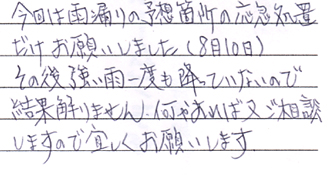 今回は雨漏りの予想箇所の応急処置
だけお願いしました(8月10日)
その後強い雨一度も降っていないので
結果解りません。何かあれば又ご相談
しますので宜しくお願いします